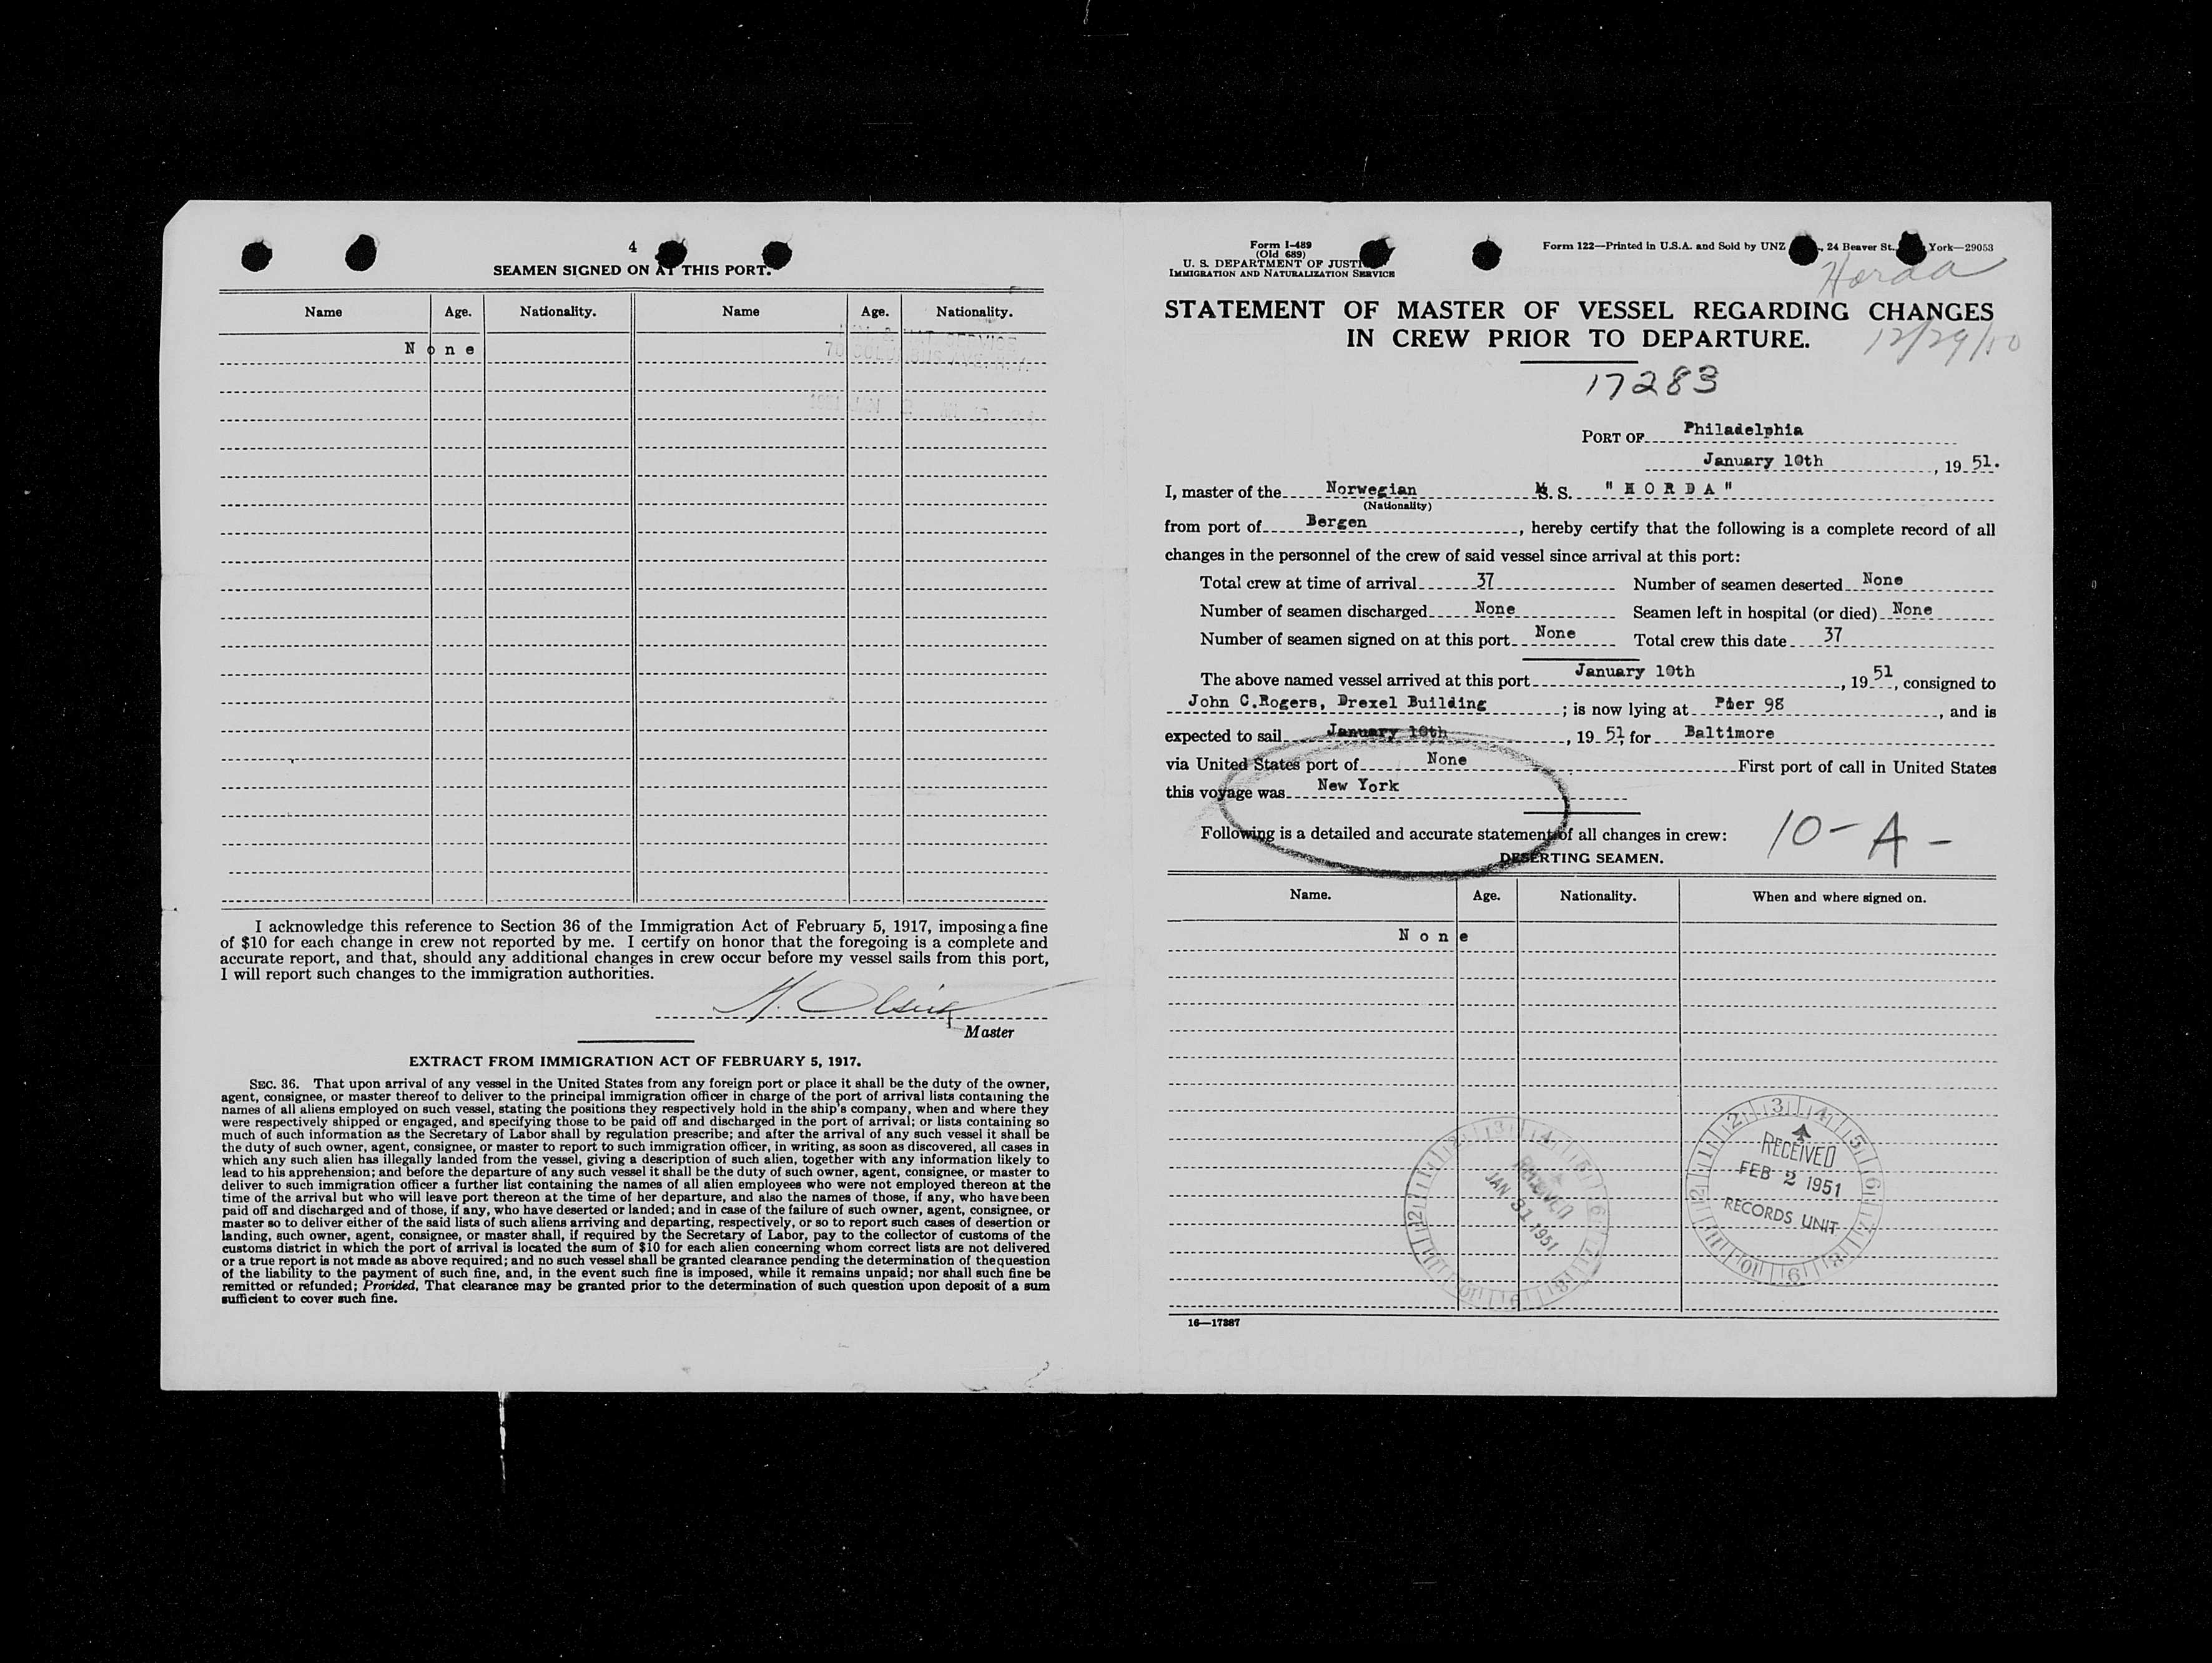 4
SEAMEN SIGNED ON AT THIS PORT.
Name Age. Nationality. Name Age. Nationality.
None
I acknowledge this reference to Section 36 of the Immigration Act of February 5, 1917, imposing a fine
of $10 for each change in crew not reported by me. I certify on honor that the foregoing is a complete and
accurate report, and that, should any additional changes in crew occur before my vessel sails from this port,
I will report such changes to the immigration authorities.
Master
EXTRACT FROM IMMIGRATION ACT OF FEBRUARY 5, 1917.
SEC. 36. That upon arrival of any vessel in the United States from any foreign port or place it shall be the duty of the owner,
agent, consignee, or master thereof to deliver to the principal immigration officer in charge of the port of arrival lists containing the
names of all aliens employed on such vessel, stating the positions they respectively hold in the ship's company, when and where they
were respectively shipped or engaged, and specifying those to be paid off and discharged in the port of arrival; or lists containing so
much of such information as the Secretary of Labor shall by regulation prescribe; and after the arrival of any such vessel it shall be
the duty of such owner, agent, consignee, or master to report to such immigration officer, in writing, as soon as discovered, all cases in
which any such alien has illegally landed from the vessel, giving a description of such alien, together with any information likely to
lead to his apprehension; and before the departure of any such vessel it shall be the duty of such owner, agent, consignee, or master to
deliver to such immigration officer a further list containing the names of all alien employees who were not employed thereon at the
time of the arrival but who will leave port thereon at the time of her departure, and also the names of those, if any, who have been
paid off and discharged and of those, if any, who have deserted or landed; and in case of the failure of such owner, agent, consignee, or
master so to deliver either of the said lists of such aliens arriving and departing, respectively, or so to report such cases of desertion or
landing, such owner, agent, consignee, or master shall, if required by the Secretary of Labor, pay to the collector of customs of the
customs district in which the port of arrival is located the sum of $10 for each alien concerning whom correct lists are not delivered
or a true report is not made as above required; and no such vessel shall be granted clearance pending the determination of the question
of the liability to the payment of such fine, and, in the event such fine is imposed, while it remains unpaid; nor shall such fine be
remitted or refunded; Provided, That clearance may be granted prior to the determination of such question upon deposit of a sum
sufficient to cover such fine.
Form I-489
(Old 689)
U. S. DEPARTMENT OF JUSTI
IMMIGRATION AND NATURALIZATION SERVICE
Form 122—Printed in U.S.A. and Sold by UNZ , 24 Beaver St., York—29053
Horda
STATEMENT OF MASTER OF VESSEL REGARDING CHANGES
IN CREW PRIOR TO DEPARTURE.
12/29/50
17283
PORT OF Philadelphia
January 10th, 1951.
I, master of the Norwegian M.S. "HORDA"
(Nationality)
from port of Bergen, hereby certify that the following is a complete record of all
changes in the personnel of the crew of said vessel since arrival at this port:
Total crew at time of arrival 37 Number of seamen deserted None
Number of seamen discharged None Seamen left in hospital (or died) None
Number of seamen signed on at this port None Total crew this date 37
The above named vessel arrived at this port January 10th, 1951, consigned to
John C.Rogers, Drexel Building; is now lying at Pier 98, and is
expected to sail January 10th, 1951, for Baltimore
via United States port of None First port of call in United States
this voyage was New York
Following is a detailed and accurate statement of all changes in crew:
10-A-
DESERTING SEAMEN.
Name. Age. Nationality. When and where signed on.
None
RECEIVED
JAN 31 1951
RECEIVED
FEB 2 1951
RECORDS UNIT
16—17287